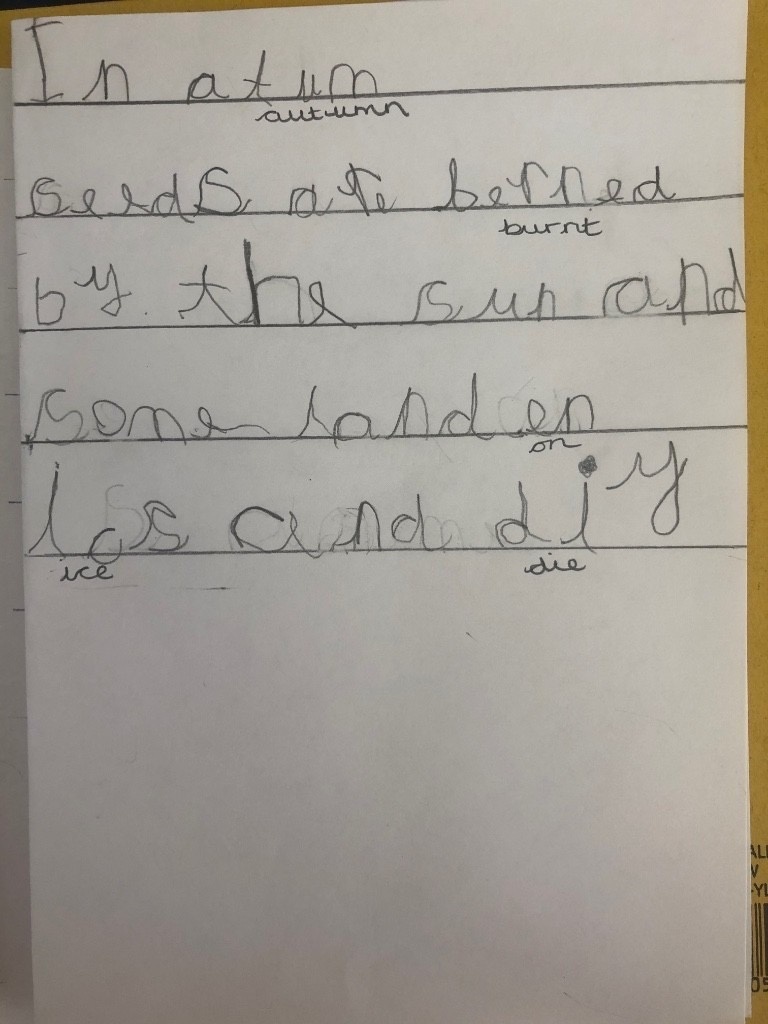 In atum
autumn
seeds are berned
burnt
by the sun and
some land en
on
Ics and diy
ice die